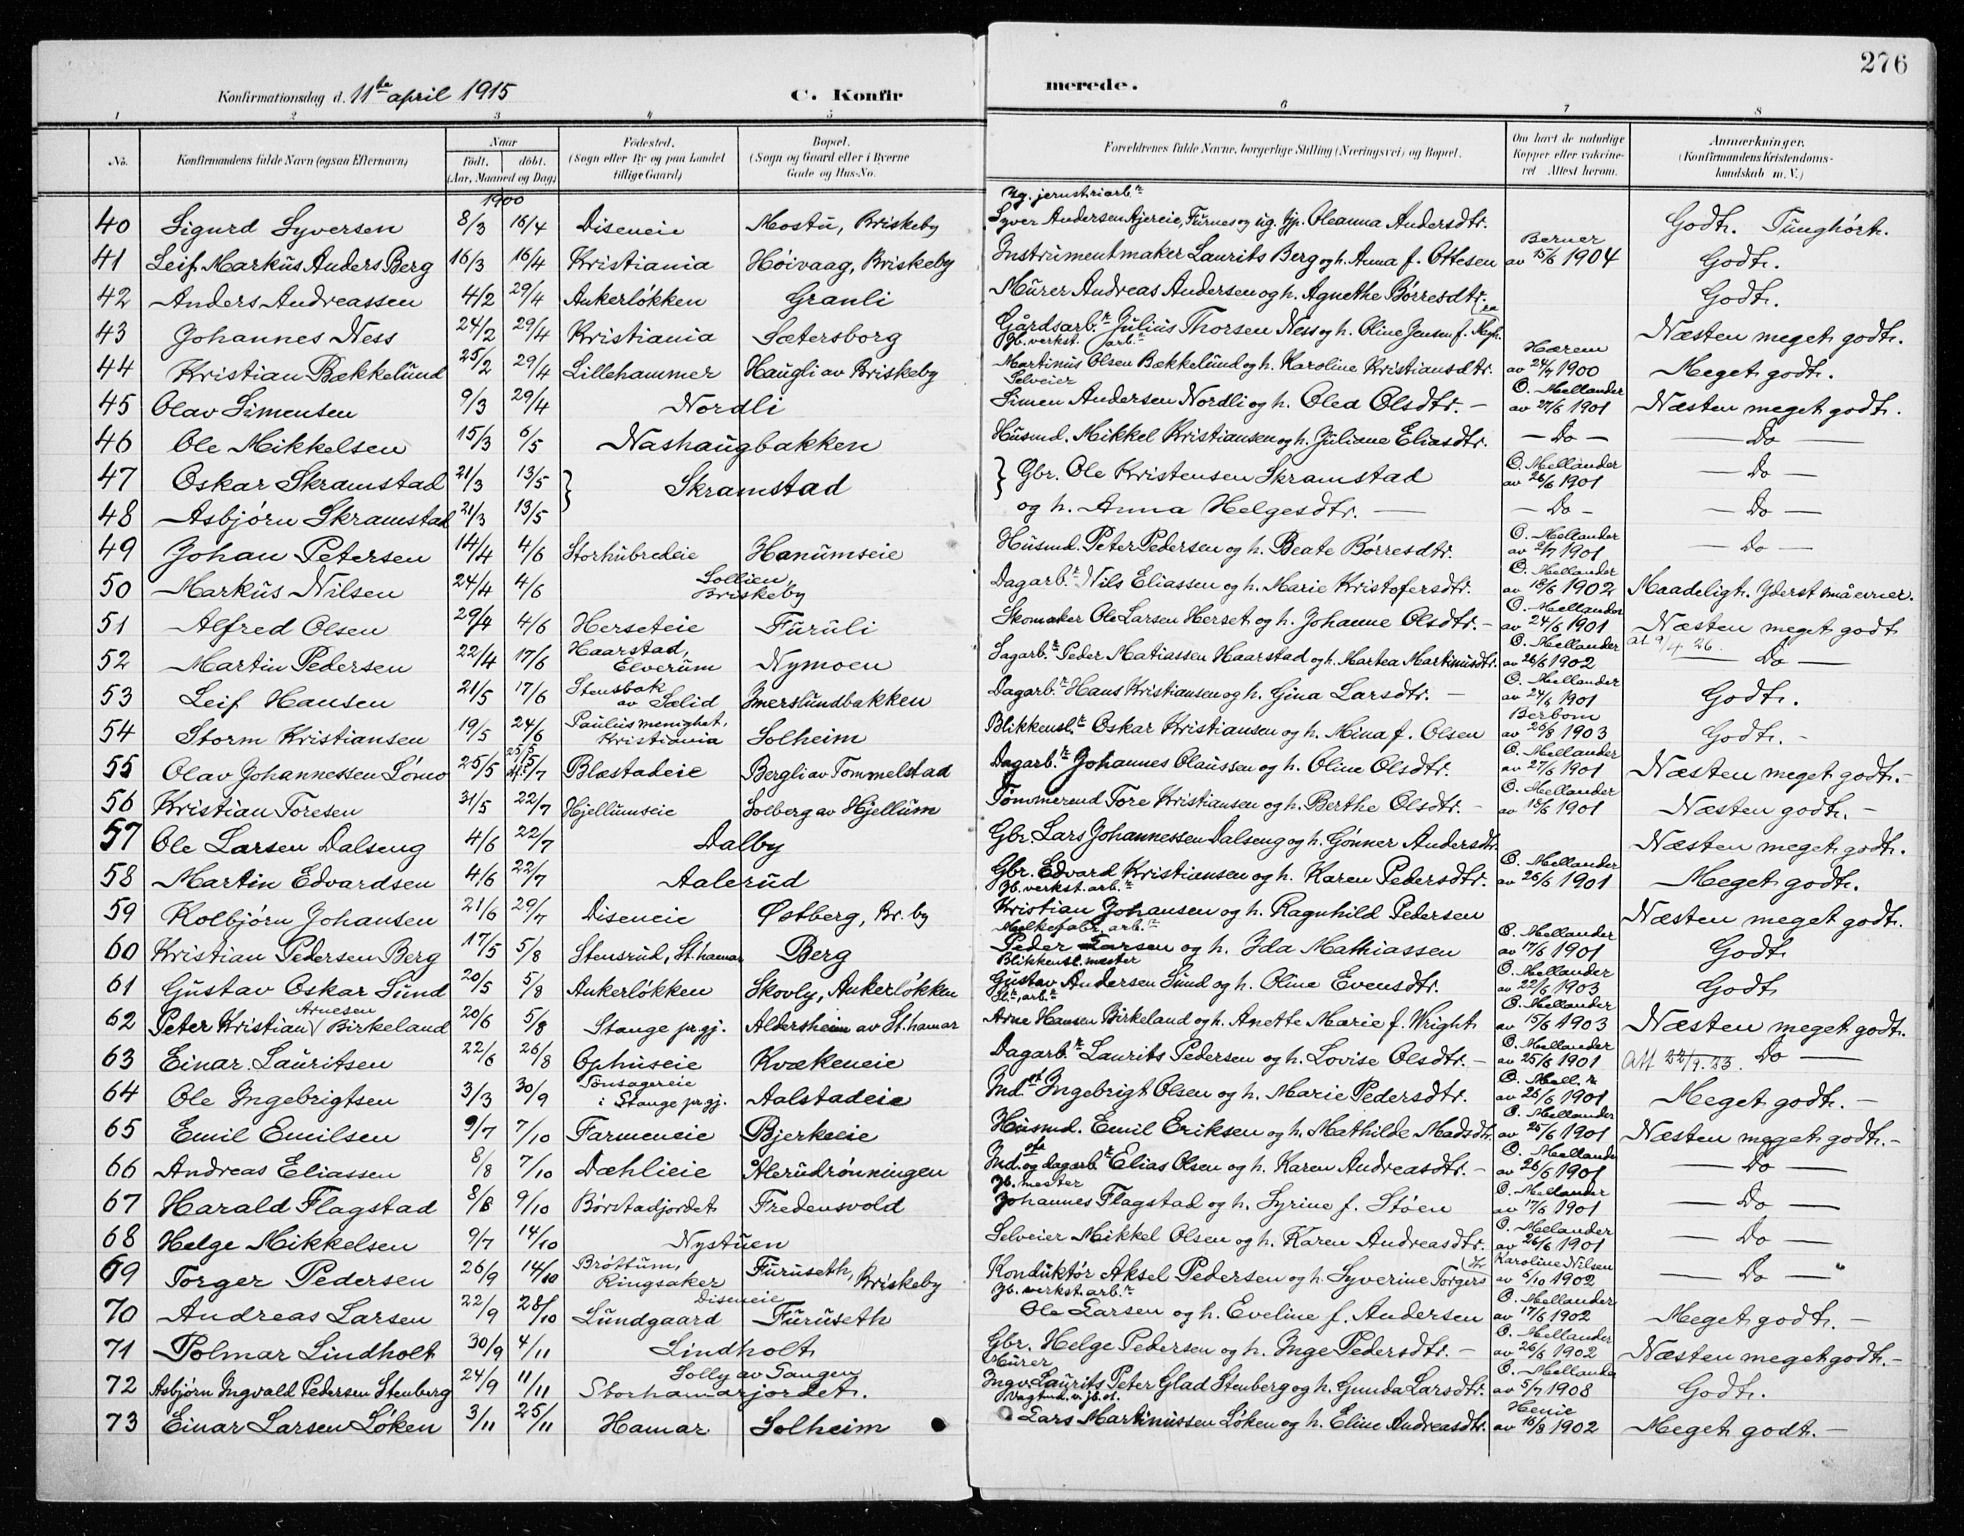 276
Konfirmationsdag d. 11te april 1915 C. Konfirmerede.
1 2 3 4 5 6 7 8
No. Konfirmandens fulde Navn (ogsaa Efternavn) Naar født, døbt. (Aar, Maaned og Dag) Fødested. (Sogn eller By og paa Landet tillige Gaard) Bopæl. (Sogn og Gaard eller i Byerne Gade og Hus-No. Forældrenes fulde Navne, borgerlige Stilling (Næringsvei) og Bopæl. Om havt de naturlige Kopper eller vakcineret. Attest herom. Anmærkninger. (Konfirmandens Kristendomskundskab m. V.)
1900
40 Sigurd Syversen 8/3 16/4 Diseneie Mostu, Briskeby Ug. jernstriarb.r Syver Andersen Ajereie, Furnes og ug. tjp. Oleanna Andersdtr. Godt. Tunghørt.
41 Leif Markus Anders Berg 16/3 16/4 Kristiania Høivaag, Briskeby Instrumentmaker Laurits Berg og h. Anna f. Ottesen Berner av 15/6 1904 Godt.
42 Anders Andreassen 4/2 29/4 Ankerløkken Granli Murer Andreas Andersen og h. Agnethe Børresdtr. Godt.
43 Johannes Ness 24/2 29/4 Kristiania Sætersborg Gårdsarb.r Julius Thorsen Ness og h. Oline Jensen f. Næsten meget godt.
44 Kristian Bækkelund 25/2 29/4 Lillehammer Haugli av Briskeby Jb. verkst. arb.r Martinus Olsen Bækkelund og h. Karoline Kristiansdtr. Hærem av 24/9 1900 Meget godt.
45 Olav Simensen 9/3 29/4 Nordli Selveier Simen Andersen Nordli og h. Olea Olsdtr. — O. Mellander av 27/6 1901 Næsten meget godt.
46 Ole Mikkelsen 15/3 6/5 Nashaugbakken Husmd. Mikkel Kristiansen og h. Juliane Eliasdtr. — Do — — Do —
47 Oskar Skramstad 21/3 13/5 } Skramstad } Gbr. Ole Kristensen Skramstad O. Mellander av 26/6 1901 — Do —
48 Asbjørn Skramstad 21/3 13/5 og h. Anna Helgesdtr. — — Do — — Do —
49 Johan Petersen 14/4 4/6 Storhubredeie Hanumseie Husmd. Peter Pedersen og h. Beate Børresdtr. O. Mellander av 2/7 1901 — Do —
50 Markus Nilsen 24/4 4/6 Sollien, Briskeby Dagarb.r Nils Eliassen og h. Marie Kristofersdtr. O. Mellander av 18/6 1902 Maadeligt. Yderst små evner.
51 Alfred Olsen 29/4 4/6 Herseteie Furuli Skomaker Ole Larsen Herset og h. Johanne Olsdtr. — O. Mellander av 24/6 1901 Næsten meget godt
52 Martin Pedersen 22/4 17/6 Haarstad, Elverum Nymoen Sagarb.r Peder Matiassen Haarstad og h. Martea Martinusdtr. O. Mellander av 26/6 1902 at 9/4 26. Do —
53 Leif Hansen 21/5 17/6 Stensbak av Sælid Imerslundbakken Dagarb.r Hans Kristiansen og h. Gina Larsdtr. — O. Mellander av 24/6 1901 Godt.
54 Storm Kristiansen 19/5 24/6 Paulus menighet, Kristiania Solheim Blikkensl.r Oskar Kristiansen og h. Mina f. Olsen Berbom av 20/8 1903 Godt. —
55 Olav Johannessen Lømo 25/5 25/5 /7 Blæstadeie Bergli av Tommelstad Dagarb.r Johannes Olaussen og h. Oline Olsdtr. O. Mellander av 27/6 1901 Næsten meget godt. —
56 Kristian Toresen 31/5 22/7 Hjellumseie Solberg av Hjellum Tømmerend Tore Kristiansen og h. Berthe Olsdtr. — O. Mellander av 18/6 1901 Næsten godt. —
57 Ole Larsen Dalseng 4/6 22/7 Dalby Gbr. Lars Johannessen Dalseng og h. Gønner Andersdtr. Næsten meget godt.
58 Martin Edvardsen 4/6 22/7 Aalerud Gbr. Edvard Kristiansen og h. Karen Pedersdtr. O. Mellander av 26/6 1901 Meget godt.
59 Kolbjørn Johansen 21/6 29/7 Diseneie Østberg, Br.by Jb. verkst. arb.r Kristian Johansen og h. Ragnhild Pedersen Næsten meget godt.
60 Kristian Pedersen Berg 17/5 5/8 Stensrud, St.hamar Berg Melkefabr. arb.r Peder Larsen og h. Ida Mathiassen O. Mellander av 17/6 1901 Godt
61 Gustav Oskar Sund 20/5 5/8 Ankerløkken Skovly, Ankerløkken Blikkensl. mester Gustav Andersen Sund og h. Oline Evensdtr. O. Mellander av 22/6 1903 Godt
62 Peter Kristian Arnesen Birkeland 20/6 5/8 Stange pr.gj. Aldersheim av St.hamar arb.r Arne Hansen Birkeland og h. Anette Marie f. Wright O. Mellander av 15/6 1903 Næsten meget godt.
63 Einar Lauritsen 22/6 26/8 Ophuseie Kvækeneie Dagarb.r Laurits Pedersen og h. Lovise Olsdtr. — O. Mellander av 25/6 1901 Att 22/9.23. Do —
64 Ole Ingebrigtsen 3/3 30/9 Tønsagereie i Stange pr.gj. Aalstadeie Ind.st Ingebrigt Olsen og h. Marie Pedersdtr. O. Mell.r av 26/6 1901 Meget godt. —
65 Emil Emilsen 9/7 7/10 Farmeneie Bjerkeeie Husmd. Emil Eriksen og h. Mathilde Madsdtr. O. Mellander av 25/6 1901 Næsten meget godt. —
66 Andreas Eliassen 8/8 7/10 Dæhlieie Alerudrønningen Ind.ste og dagarb.r Elias Olsen og h. Karen Andreasdtr. — O. Mellander av 26/6 1901 — Do —
67 Harald Flagstad 8/8 9/10 Børstadjordet Fredensvold Jb. mester Johannes Flagstad og h. Syrine f. Støen O. Mellander av 17/6 1901 — Do —
68 Helge Mikkelsen 9/7 14/10 Nystuen Selveier Mikkel Olsen og h. Karen Andreasdtr. O. Mellander av 26/6 1901 — Do —
69 Torger Pedersen 26/9 14/10 Brøttum, Ringsaker Furuseth, Briskeby Konduktør Aksel Pedersen og h. Syverine Torgers Karoline Nilsen av 6/10 1902 — Do —
70 Andreas Larsen 22/9 28/10 Diseneie Lundgaard Furuseth Jb. verkst. arb.r Ole Larsen og h. Eveline f. Andersen O. Mellander av 17/6 1902 Meget godt. —
71 Polmar Lindholt 30/9 4/11 Lindholt Gbr. Helge Pedersen og h. Inge Pedersdtr. — O. Mellander av 26/6 1902 Næsten meget godt. —
72 Asbjørn Ingvald Pedersen Stenberg 24/9 11/11 Solly av Tangen Storhamarjordet. Murer Ingv. Laurits Peter Glad Stenberg og h. Gunda Larsdtr. O. Mellander av 5/7 1908 Godt.
73 Einar Larsen Løken 3/11 25/11 Hamar Solheim Vagtmd. v. jb. st. Lars Martinussen Løken og h. Eline Andreasdtr. Henie av 16/8 1902 Meget godt. —